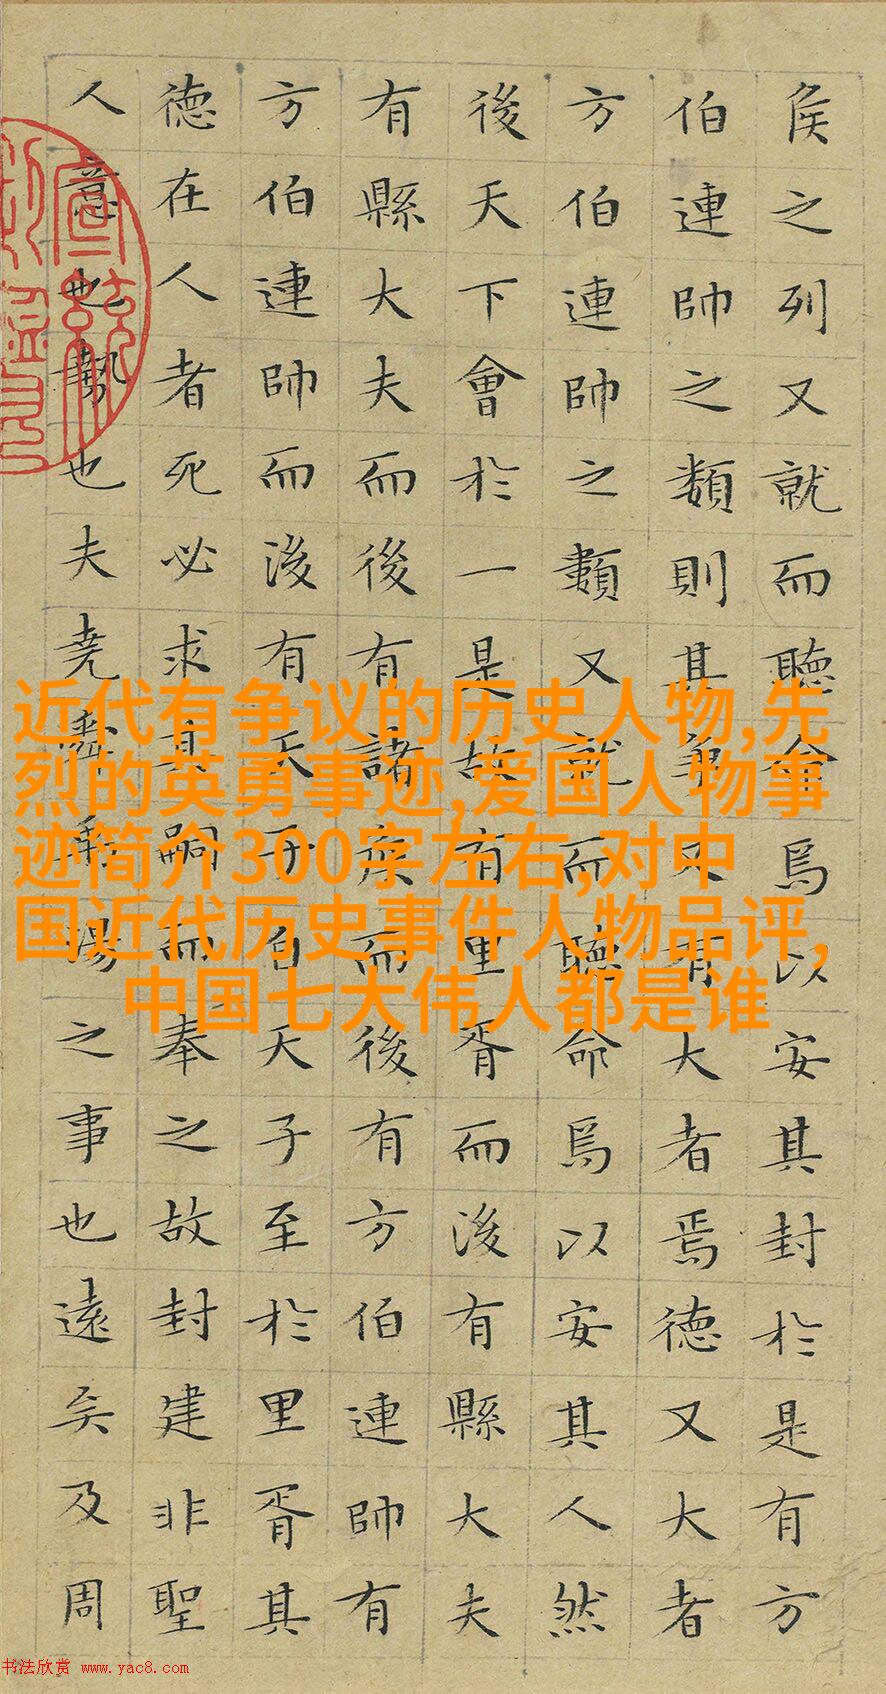 侯之列又就而聽命焉以安其封於是有方
伯連帥之類則其爭又有大者焉德又大者
方伯連帥之類又就而聽命焉以安其人然
後天下會於一是故有里胥而後有縣大夫
有縣大夫而後有諸侯而後有方伯連帥有
方伯連帥而後有天子自天子至於里胥其
德在人者死必求其嗣而奉之故封建非聖
人意也勢也夫堯舜禹湯之事也遠矣及周
宣統
近代有争议的历史人物,先
烈的英勇事迹,爱国人物事
迹简介300字左右,对中
国近代历史事件人物品评,
中国七大伟人都是谁
书法欣赏 www.yac8.com